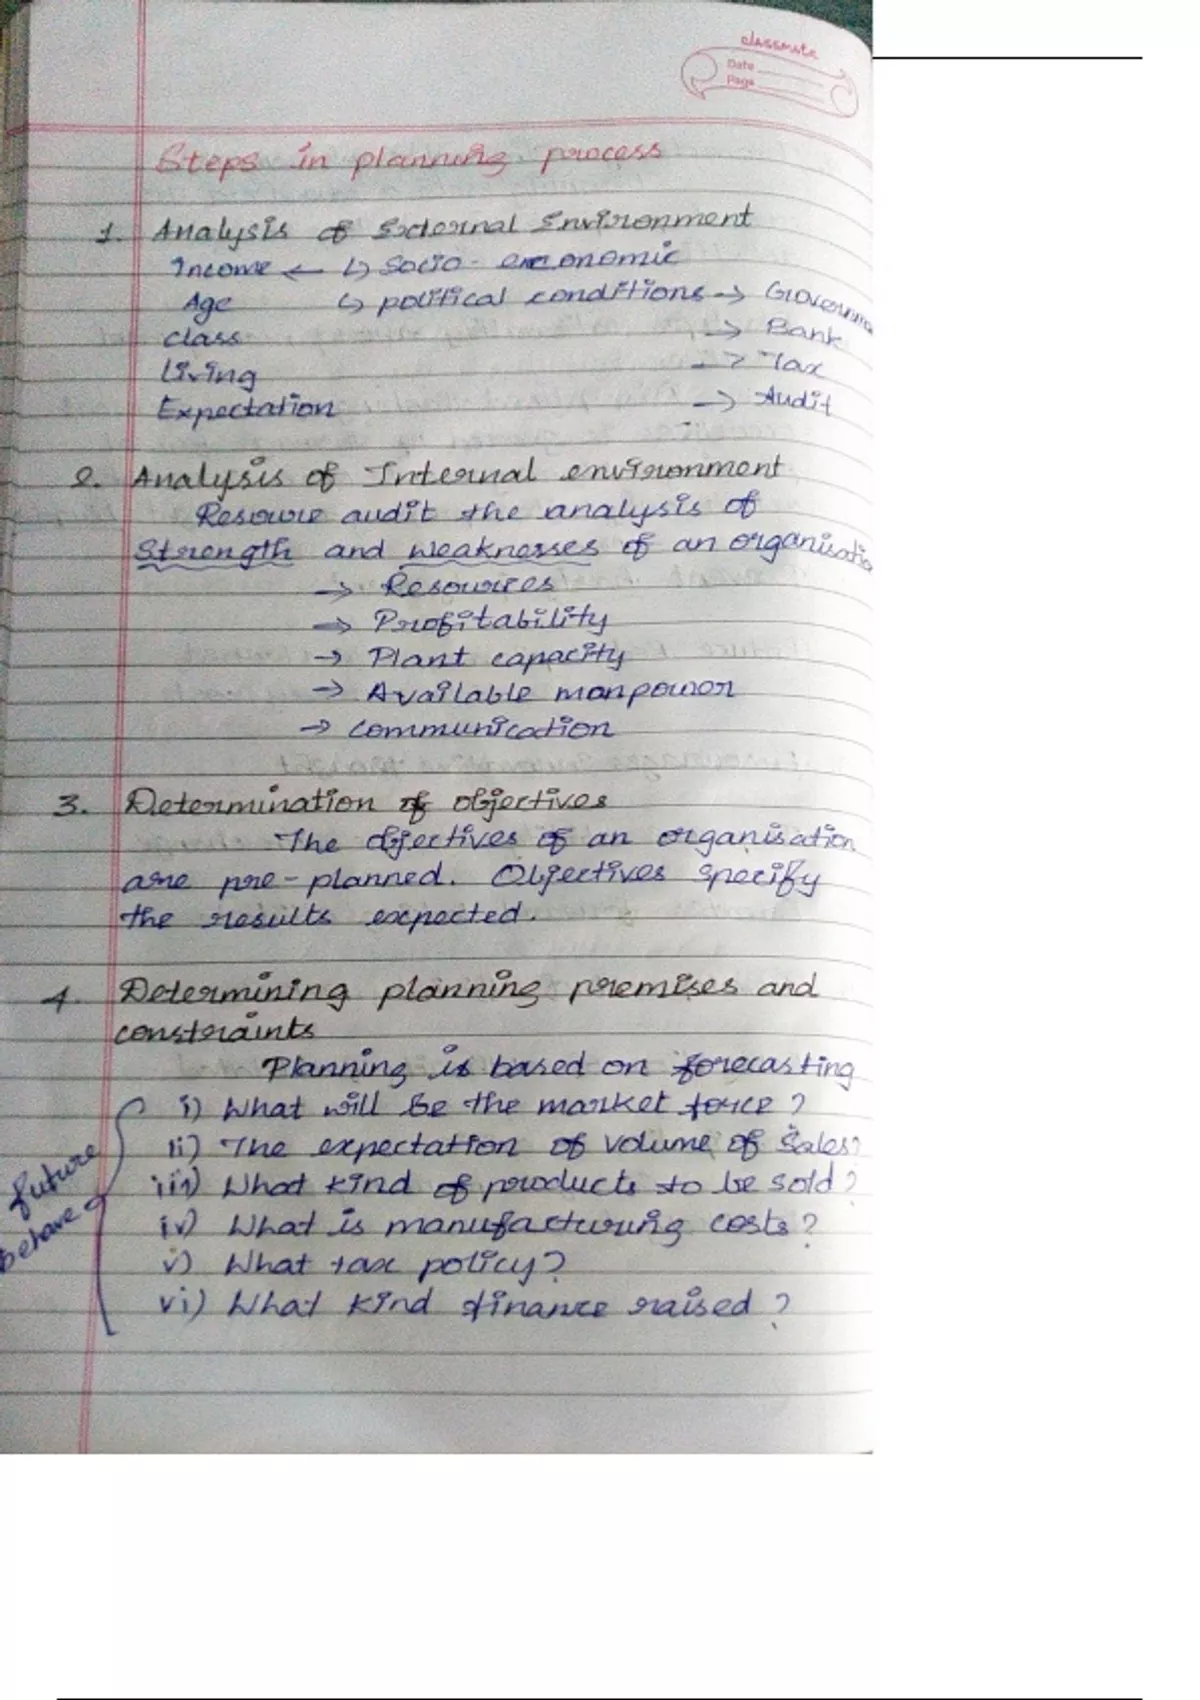 classmate
Date
Page
Steps in planning process
1. Analysis of External Environment
Income ← ↳ Socio - economic
Age ↳ political conditions → Governm
class → Bank
Living → Tax
Expectation → Audit
2. Analysis of Internal environment
Resource audit the analysis of
Strength and weaknesses of an organisatio
→ Resources
→ Profitability
→ Plant capacity
→ Available manpower
→ communication
3. Determination of objectives
The objectives of an organisation
are pre-planned. Objectives specify
the results expected.
4. Determining planning premises and
constraints
Planning is based on forecasting
i) What will be the market force?
ii) The expectation of volume of Sales?
iii) What kind of products to be sold?
iv) What is manufacturing costs?
v) What tax policy?
vi) What kind finance raised?
future
behave